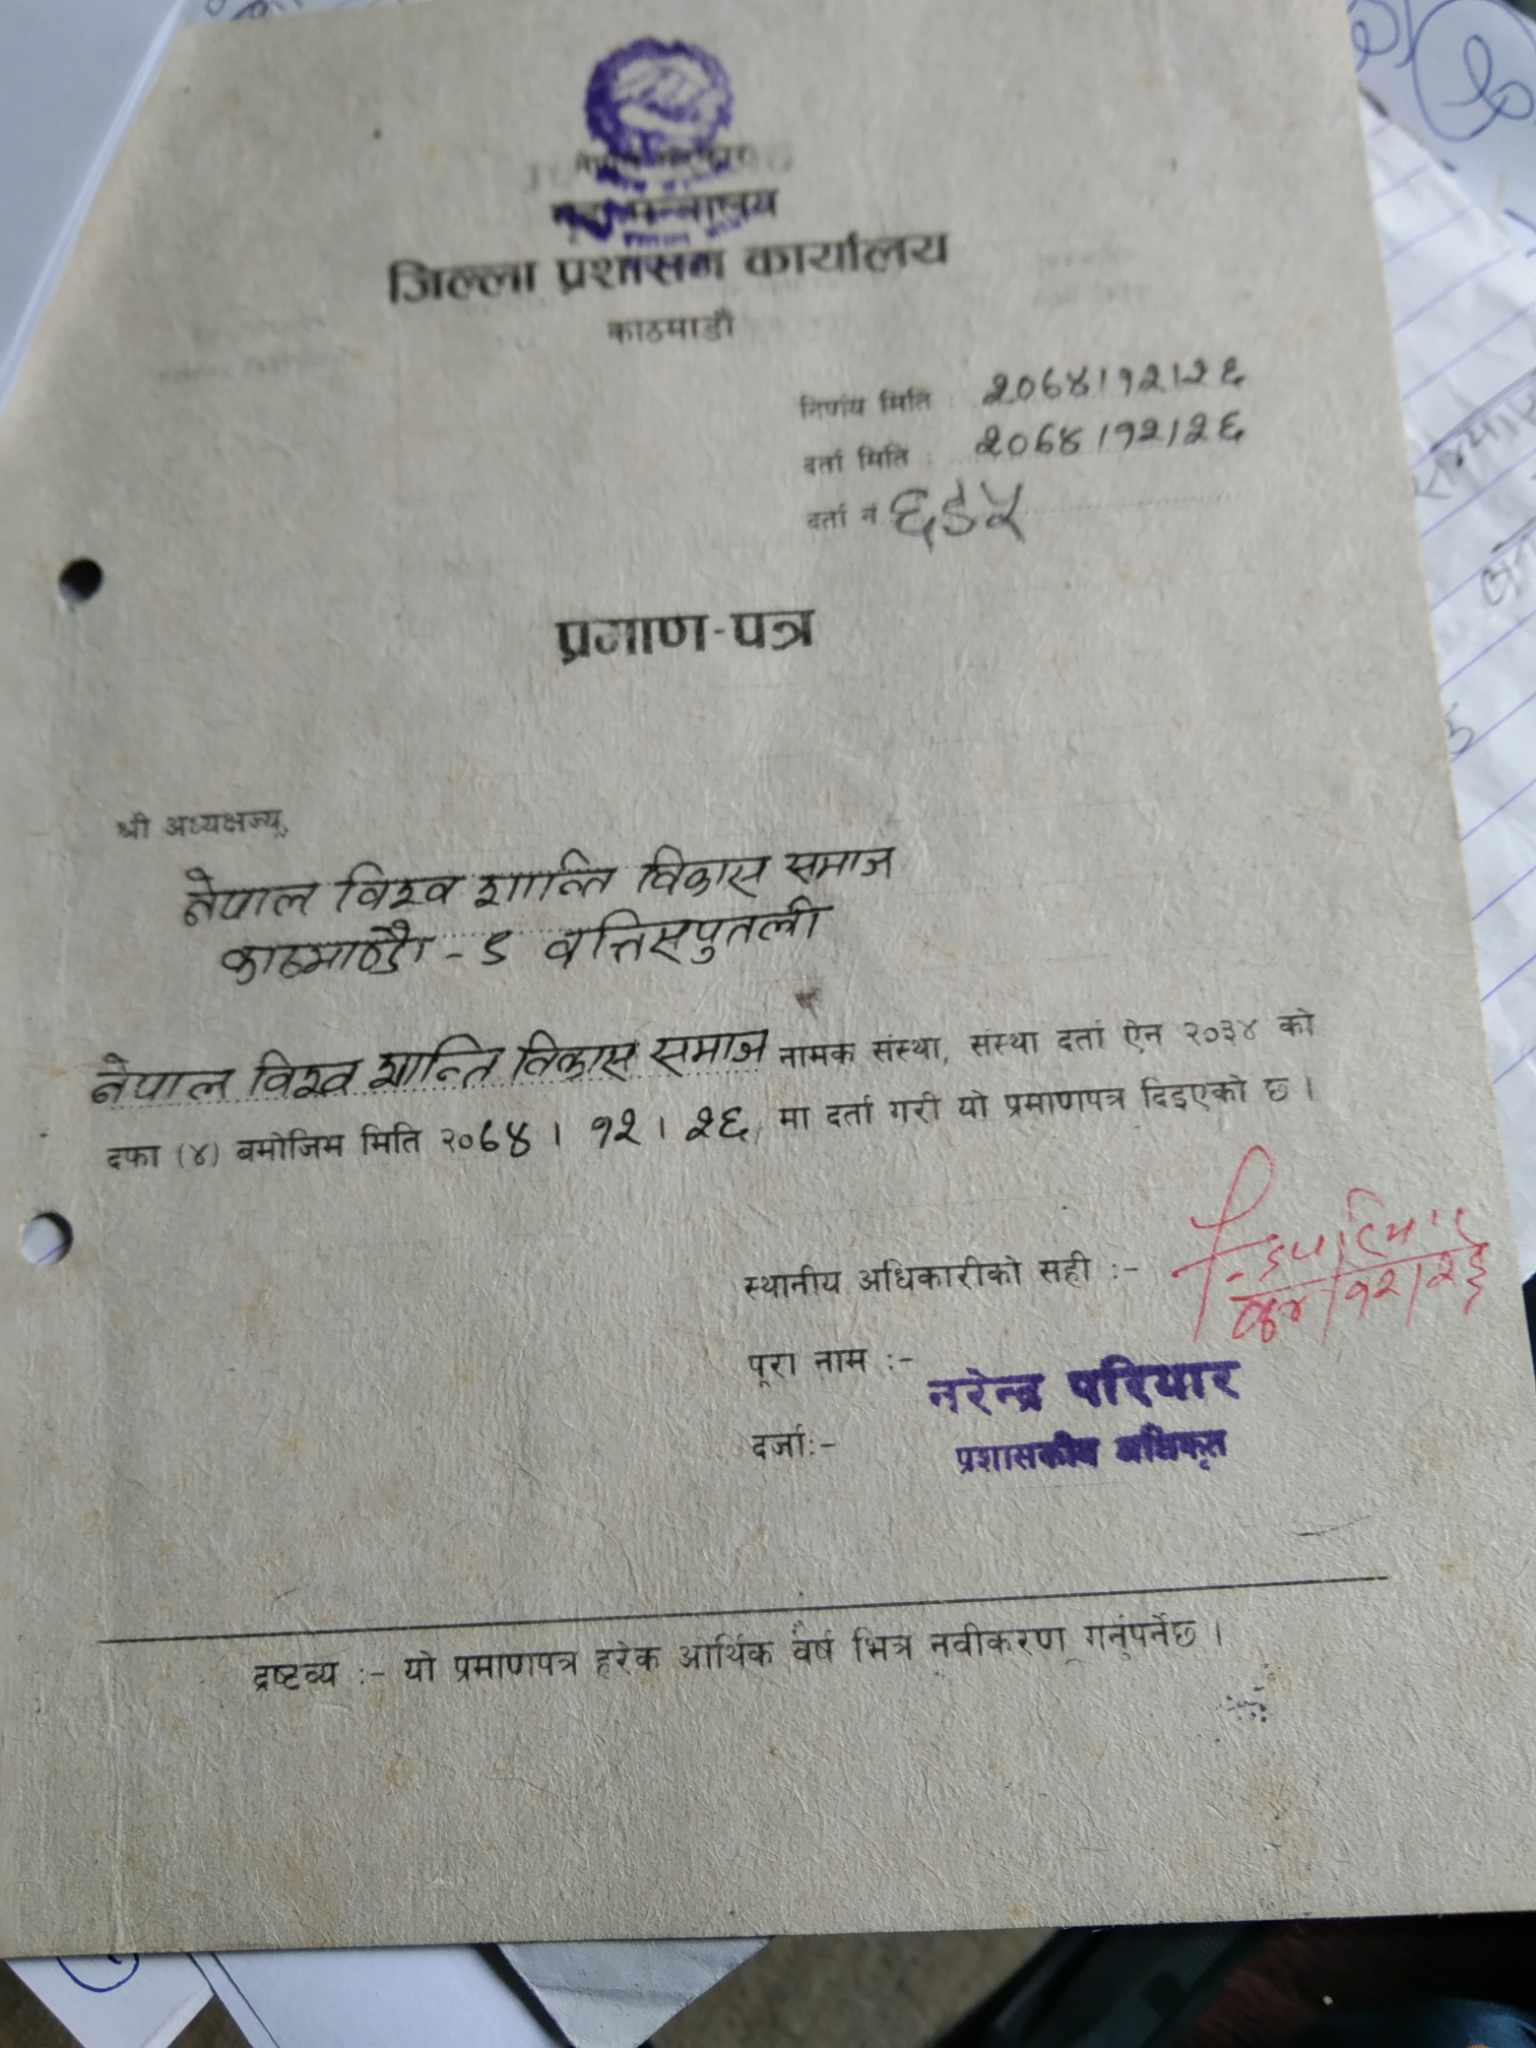 जिल्ला प्रशासन कार्यालय
काठमाडौं
निर्णय मिति : २०६४।१२।२६
दर्ता मिति : २०६४।१२।२६
दर्ता नं ६९५
प्रमाण-पत्र
श्री अध्यक्षज्यू,
नेपाल विश्व शान्ति विकास समाज
काठमाण्डौ - ९ वत्तिसपुतली
नेपाल विश्व शान्ति विकास समाज नामक संस्था, संस्था दर्ता ऐन २०३४ को
दफा (४) बमोजिम मिति २०६४। १२। २६ मा दर्ता गरी यो प्रमाणपत्र दिइएको छ।
स्थानीय अधिकारीको सही :-
पूरा नाम :- नरेन्द्र परियार
दर्जा:- प्रशासकीय अधिकृत
द्रष्टव्य :- यो प्रमाणपत्र हरेक आर्थिक वर्ष भित्र नवीकरण गर्नुपर्नेछ।